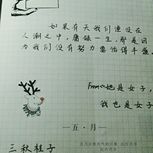 如果有天我们湮没在
人潮之中，庸碌一生，那是因
为我们没有努力要活得丰盛
From 她是女子，
我也是女子
—五·月—
三秋桂子